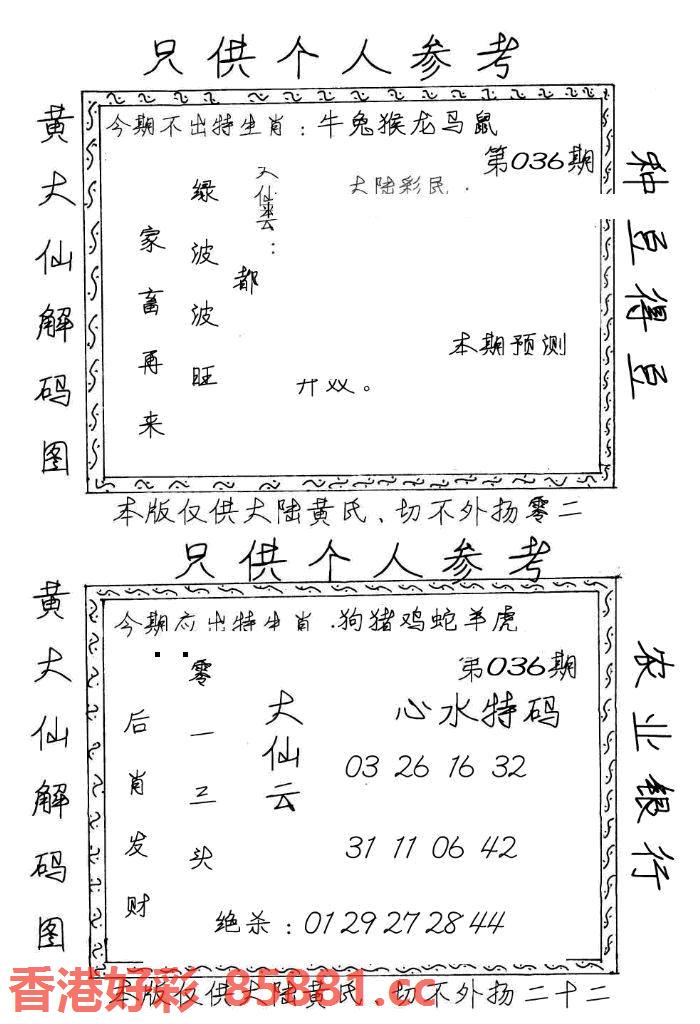 只供个人参考
黄大仙解码图
今期不出特生肖：牛兔猴龙马鼠
第036期
大陆彩民.
绿波波旺
家畜再来
都
本期预测
本版仅供大陆黄氏、切不外扬零二
种豆得豆
只供个人参考
黄大仙解码图
今期应出特生肖.狗猪鸡蛇羊虎
第036期
心水特码
大仙云
零一三头
后肖发财
03 26 16 32
31 11 06 42
绝杀：01 29 27 28 44
农业银行
本版仅供大陆黄氏、切不外扬二十二
香港好彩 85881.cc